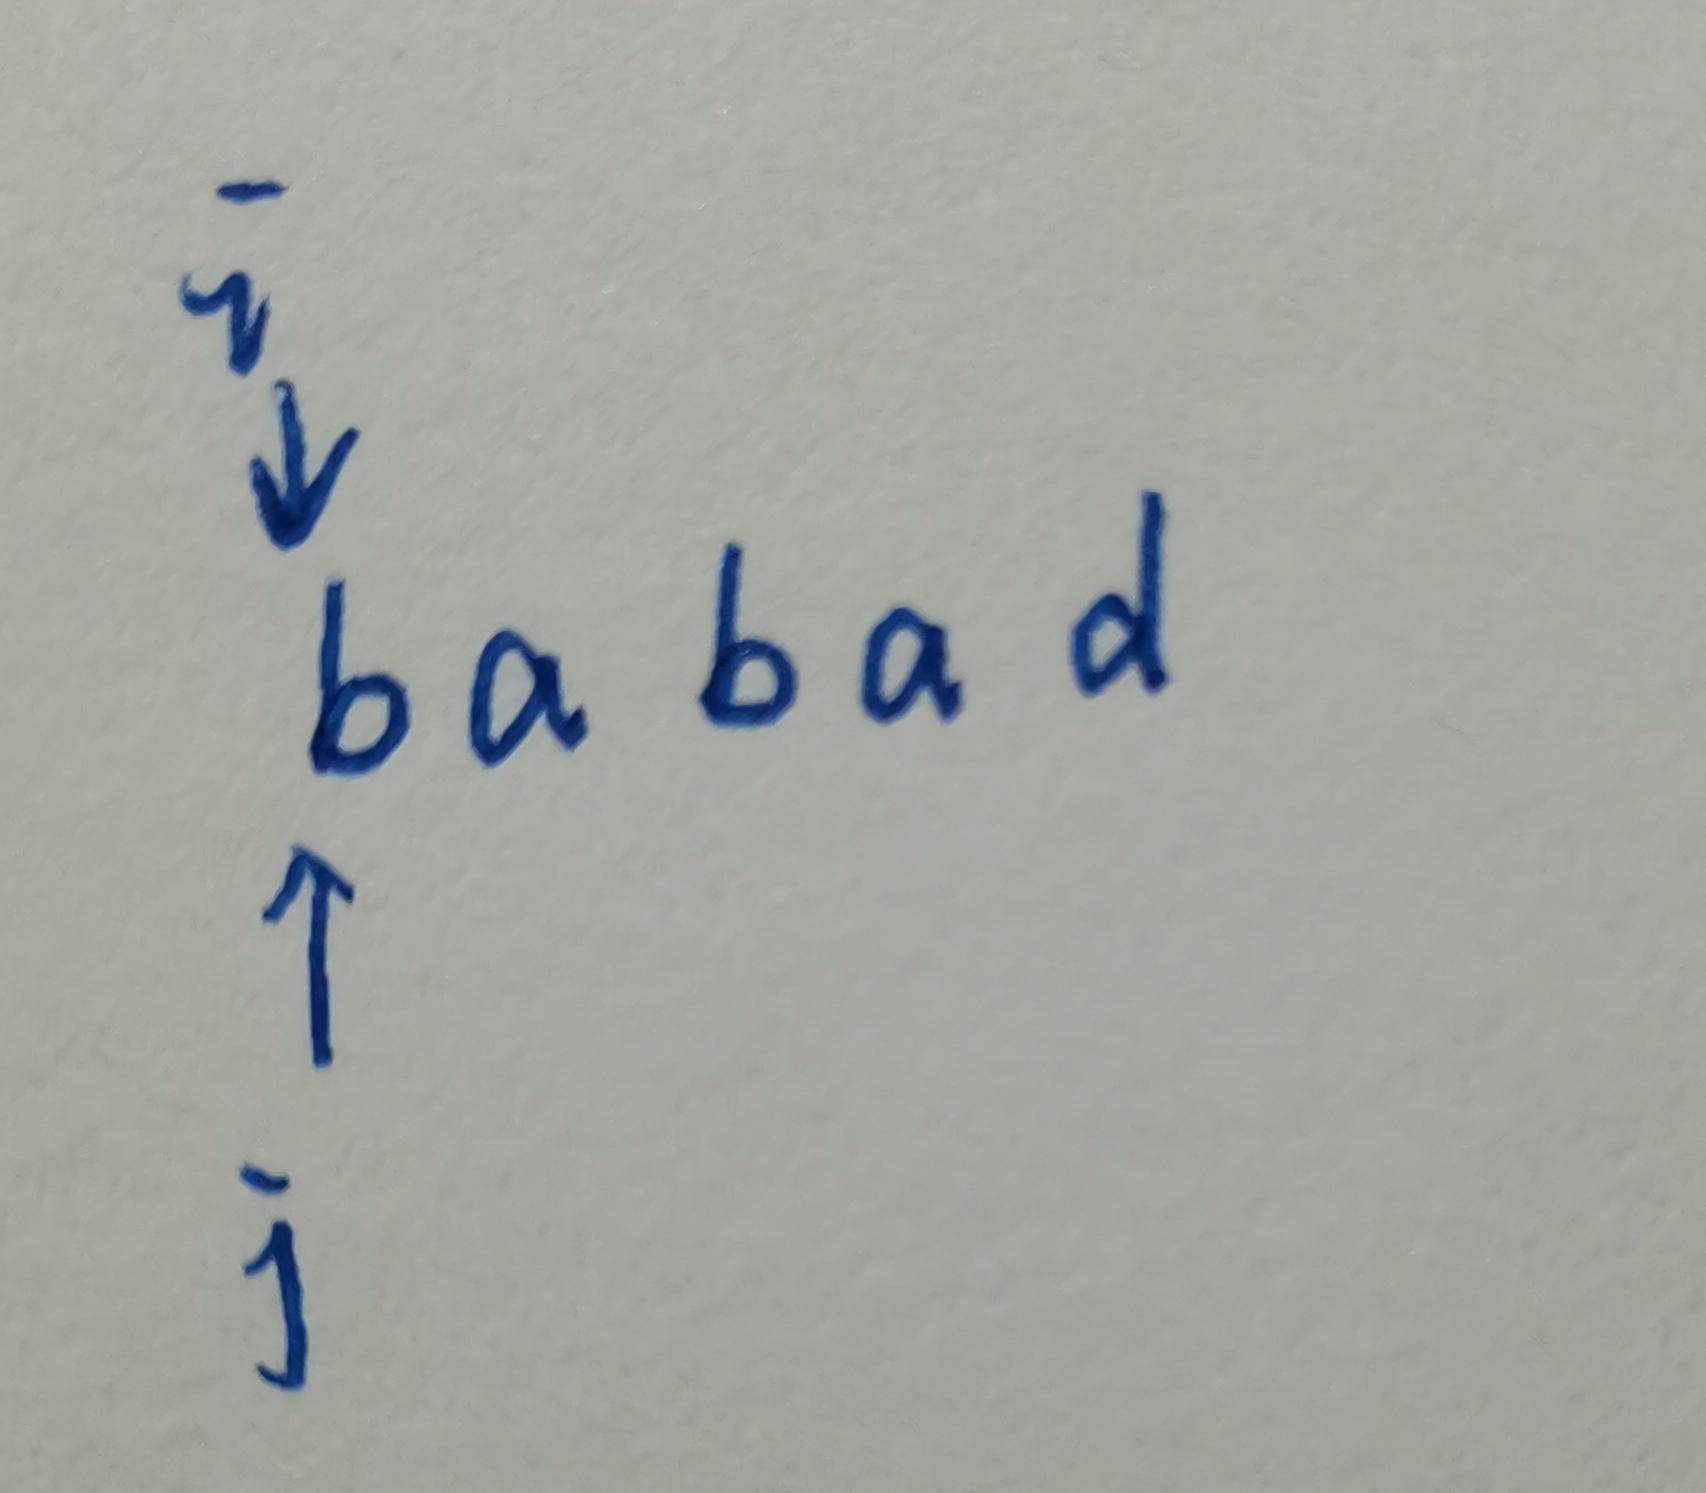 i
babad
j